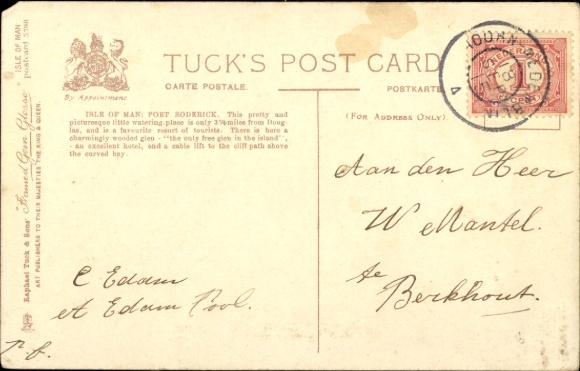 TUCK'S POST CARD
CARTE POSTALE.
POSTKARTE
By Appointment.
ISLE OF MAN; PORT SODERICK. This pretty and
picturesque little watering-place is only 3¼ miles from Doug-
las, and is a favourite resort of tourists. There is here a
charmingly wooded glen - "the only free glen in the island",
- an excellent hotel, and a cable lift to the cliff path above
the curved bay.
(FOR ADDRESS ONLY).
Aan den Heer
W Mantel.
te
Berkhout.
C Edam
et Edam Pool.
p. f.
Raphael Tuck & Sons' "Framed Gem Glosso"
ISLE OF MAN
postcard
ART PUBLISHERS TO THEIR MAJESTIES THE KING & QUEEN.
NEDERLAND
1
CENT
4